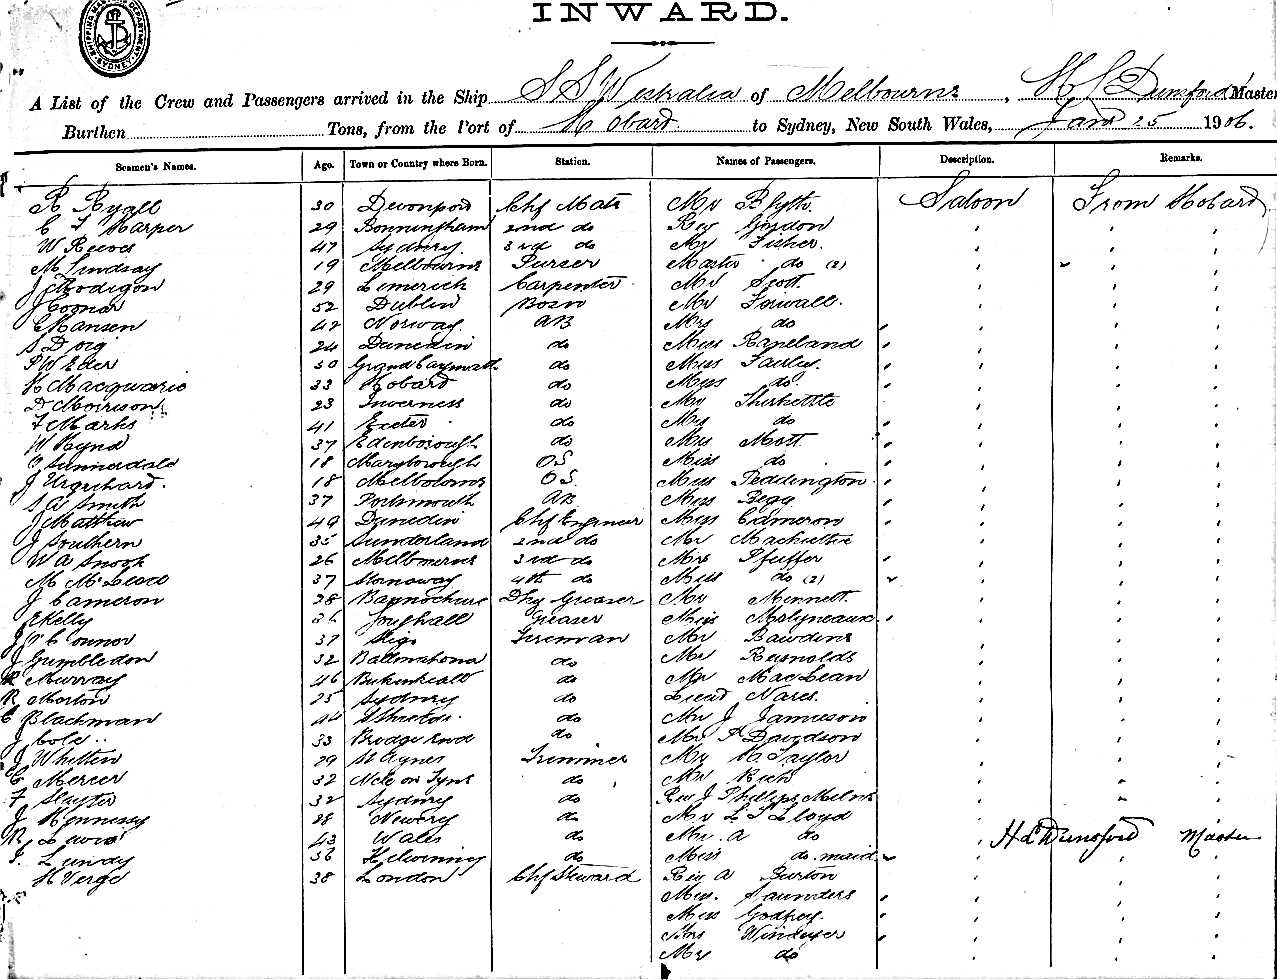 SHIPPING MASTER'S DEPARTMENT SYDNEY
INWARD.
A List of the Crew and Passengers arrived in the Ship S S Westralia of Melbourne, H L Dunsford Master
Burthen Tons, from the Port of Hobard to Sydney, New South Wales, Jany 25 1906.
Seamen's Names. Age. Town or Country where Born. Station. Names of Passengers. Description. Remarks.
R Ryall 30 Devonport Chf Mate Mr Blyth. Saloon From Hobard
C F Harper 29 Bonningham 2nd do Rev Gordon " "
W Reeves 47 Sydney 3rd do Mr Fisher. " "
M Lindsay 19 Melbourne Purser Master do (2) " "
J Modigon 29 Limerick Carpenter Mr Scott. " "
J Connor 52 Dublin Bosn Mr Farwall. " "
C Hansen 42 Norway. AB Mrs do " "
S Doig 24 Dunedin do Miss Rapeland " "
P W Eder 50 Grand Cayman do Miss Fairley. " "
H Macquarie 33 Hobard do Miss do. " "
D Morrison 23 Inverness do Mr Thirkettle " "
F Marks 41 Exeter do Mrs do " "
W Hynd 37 Edenborough do Mrs Mott. " "
C Sunnerdale 18 Maryborough OS Miss do. " "
J Urquhard. 18 Melbourne OS. Miss Peddington " "
S A Smith 37 Portsmouth AB Miss Begg " "
J Matthew 49 Dunedin Chf Engineer Miss Cameron " "
J Southern 35 Sunderland 2nd do Mr Machattie " "
W A Snook 26 Melbourne 3rd do Mrs Pfeiffer " "
M McLeod 37 Stornaway 4th do Miss do (2) " "
J Cameron 28 Dky Greaser Mr Mennett. " "
J Kelly 36 Youghall Greaser Miss Molyneaux. " "
J O'Connor 37 Sligo Fireman Mr Bawdens " "
J Gumbledon 32 Ballmahona do Mr Reynolds " "
R Murray 46 Birkinhead do Mr MacLean " "
R Morton 25 Sydney do Lieut Nares. " "
C Blachman 44 do Mr J Jamieson " "
J Cole 33 Bridge End do Mr A Davidson " "
J Whitten 29 St Agnes Trimmer Mr H Taylor " "
C Mercer 32 Ncle on Tyne do Mr Rich " "
F Slayter 32 Sydney do Rev J Phillips " "
J Hennessy 29 Newery do Mr L S Lloyd " "
R Lewis 43 Wales do Mr A do " H L Dunsford Master
J. Lundy 36 Kilwinning do Miss do. maid " "
H Verge 38 London Chf Steward Rev A Burton " "
Miss. Saunders " "
Miss Godfrey. " "
Mrs Windeyer " "
Mr do " "